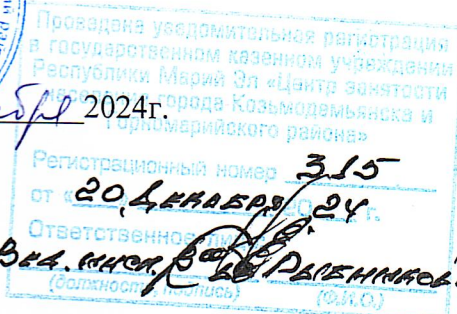 Проведена уведомительная регистрация
в государственном казенном учреждении
Республики Марий Эл «Центр занятости
населения города Козьмодемьянска и
2024г.
Горномарийского района»
Регистрационный номер 315
от «20» Декабря 2024 г.
Ответственное
Вед. инсп.
(должность, подпись) (Ф.И.О.)